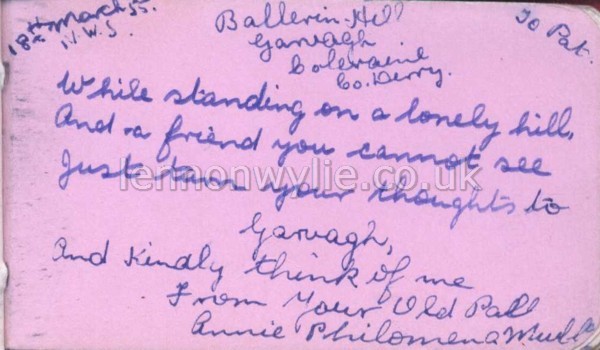 18th March 55.
N.W.S.
Ballerin-Hill
Garvagh
Coleraine
Co. Derry.
To Pat.
While standing on a lonely hill,
And a friend you cannot see
Just turn your thoughts to
lennonwylie.co.uk
Garvagh,
And Kindly think of me
From Your Old Pall
Annie Philomena